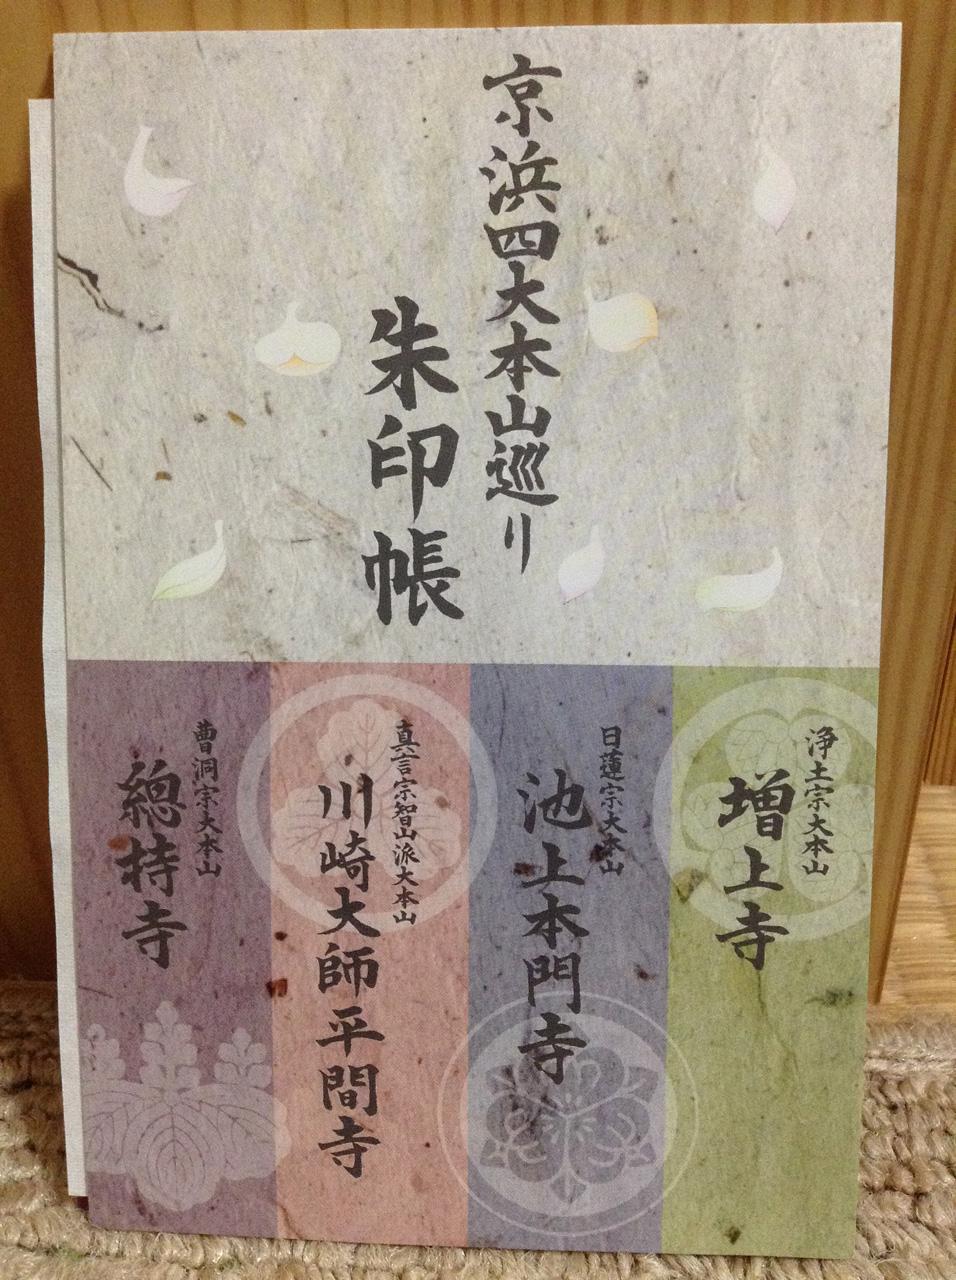 京浜四大本山巡り
朱印帳
浄土宗大本山
増上寺
日蓮宗大本山
池上本門寺
真言宗智山派大本山
川崎大師平間寺
曹洞宗大本山
總持寺